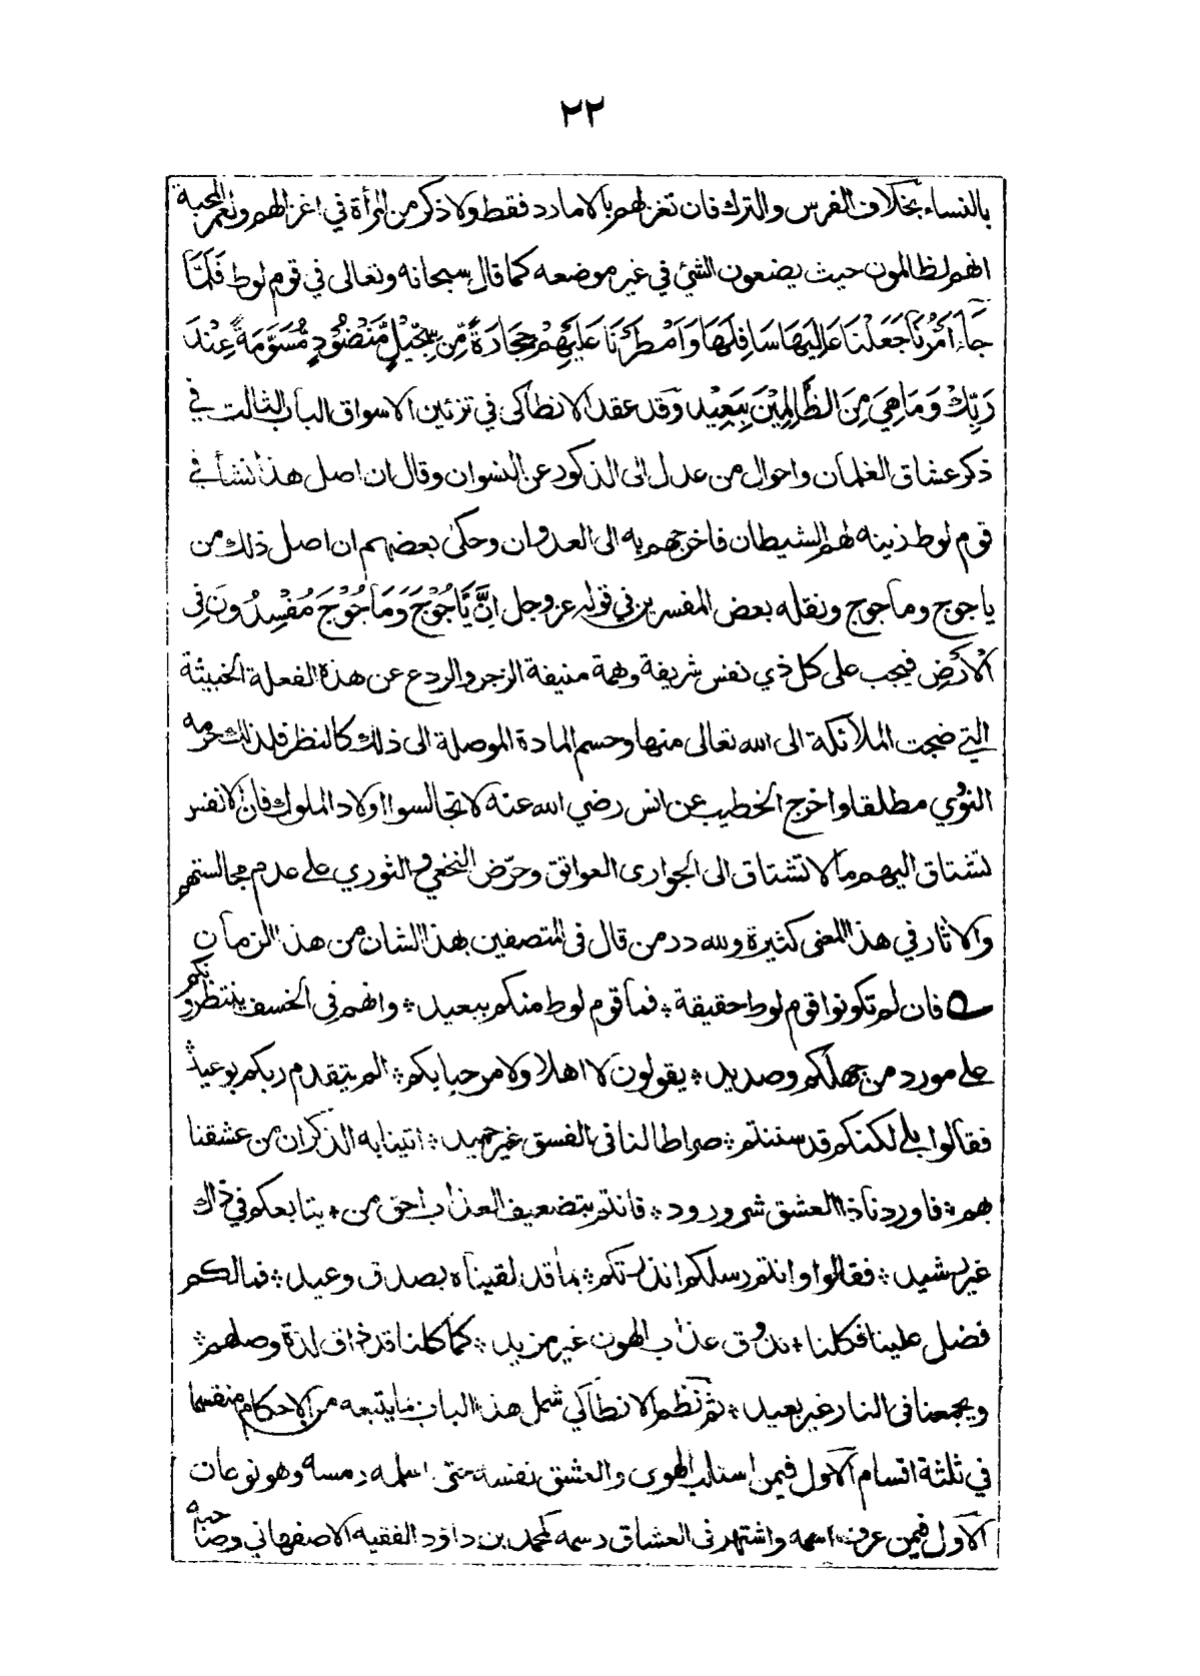 ٢٢
بالنساء بخلاف الفرس والترك فان تغزلهم بالامارد فقط ولا ذكر من المرأة في اغزالهم ولعمر المحبة
انهم لظالمون حيث يضعون الشئ في غير موضعه كما قال سبحانه وتعالى في قوم لوط فَلَمَّا
جَآءَ اَمْرُنَا جَعَلْنَا عَالِيَهَا سَافِلَهَا وَاَمْطَرْنَا عَلَيْهِمْ حِجَارَةً مِّنْ سِجِّيْلٍ مَّنْضُوْدٍ مُّسَوَّمَةً عِنْدَ
رَبِّكَ وَمَا هِيَ مِنَ الظَّالِمِيْنَ بِبَعِيْد وقد عقد الانطاكى في تزئين الاسواق الباب الثالث في
ذكر عشاق الغلمان واحوال من عدل الى الذكور عن النسوان وقال ان اصل هذا نشأ في
قوم لوط زينه لهم الشيطان فاخرجهم به الى العدوان وحكى بعضهم ان اصل ذلك من
ياجوج وماجوج ونقله بعض المفسرين في قوله عز وجل اِنَّ يَاْجُوْجَ وَمَاْجُوْجَ مُفْسِدُونَ فِى
الْاَرْضِ فيجب على كل ذي نفس شريفة وهمة منيفة الزجر والردع عن هذه الفعلة الخبيثة
التي ضجت الملائكة الى الله تعالى منها وحسم المادة الموصلة الى ذلك كالنظر فلذلك حرمه
النووي مطلقا واخرج الخطيب عن انس رضي الله عنه لا تجالسوا اولاد الملوك فان الانفس
تشتاق اليهم ما لا تشتاق الى الجوارى العواتق وحرّض النخعي والثوري على عدم مجالستهم
والاثار في هذا المعنى كثيرة ولله در من قال فى المتصفين بهذا الشان من هذا الزمان
فان لم تكونوا قوم لوط حقيقة * فما قوم لوط منكم ببعيد * وانهم فى الخسف ينتظرونكم
على مورد من جهلكم وصديد * يقولون لا اهلا ولا مرحبا بكم * الم يتقدم ربكم بوعيد *
فقالوا بلى لكنكم قد سننتم * صراطا لنا فى الفسق غير حميد * اتينا به الذكران من عشقنا
بهم * فاوردنا ذا العشق شر ورود * فانتم بتضعيف العذاب احق من * يتابعكم في ذاك
غير رشيد * فقالوا وانتم رسلكم انذرتكم * بما قد لقيناه بصدق وعيد * فما لكم
فضل علينا فكلنا * نذوق عذاب الهون غير مزيد * كما كلنا قد ذاق لذة وصلهم *
ويجمعنا فى النار غير بعيد * ثم نظم الانطاكي شمل هذا الباب بما يتبعه من الاحكام منقسما
في ثلثة اقسام الاول فيمن استلب الهوى والعشق نفسه حتى اسلمه رمسه وهو نوعان
الاول فيمن عرف اسمه واشتهر فى العشاق رسمه كمحمد بن داؤد الفقيه الاصفهاني وصاحبه